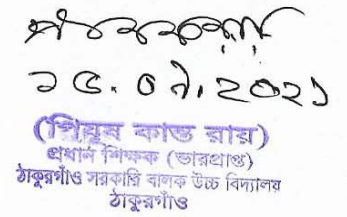 ১৫.০৭.২০২১
(পিযুষ কান্ত রায়)
প্রধান শিক্ষক (ভারপ্রাপ্ত)
ঠাকুরগাঁও সরকারি বালক উচ্চ বিদ্যালয়
ঠাকুরগাঁও